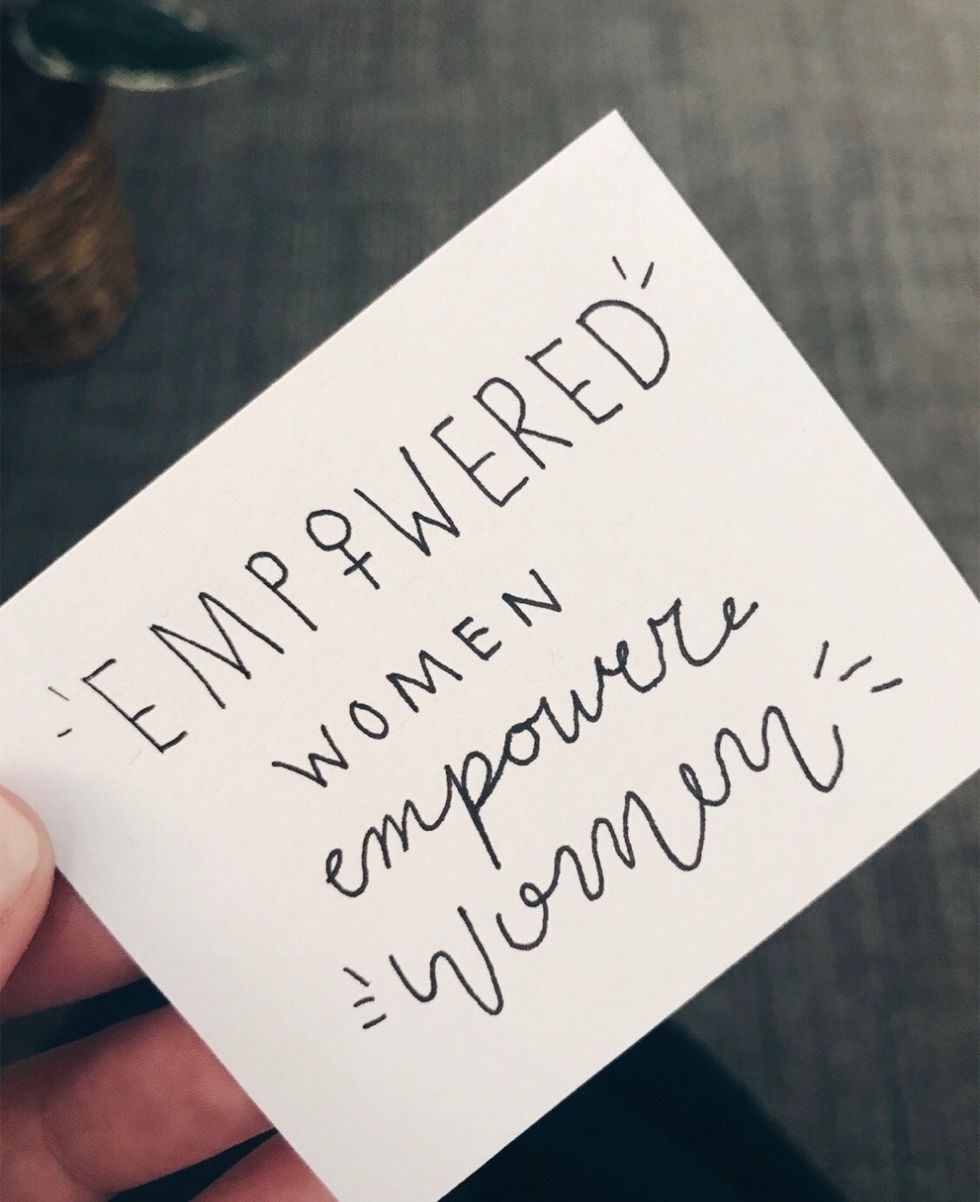 EMP♀WERED
WOMEN
empowere
women